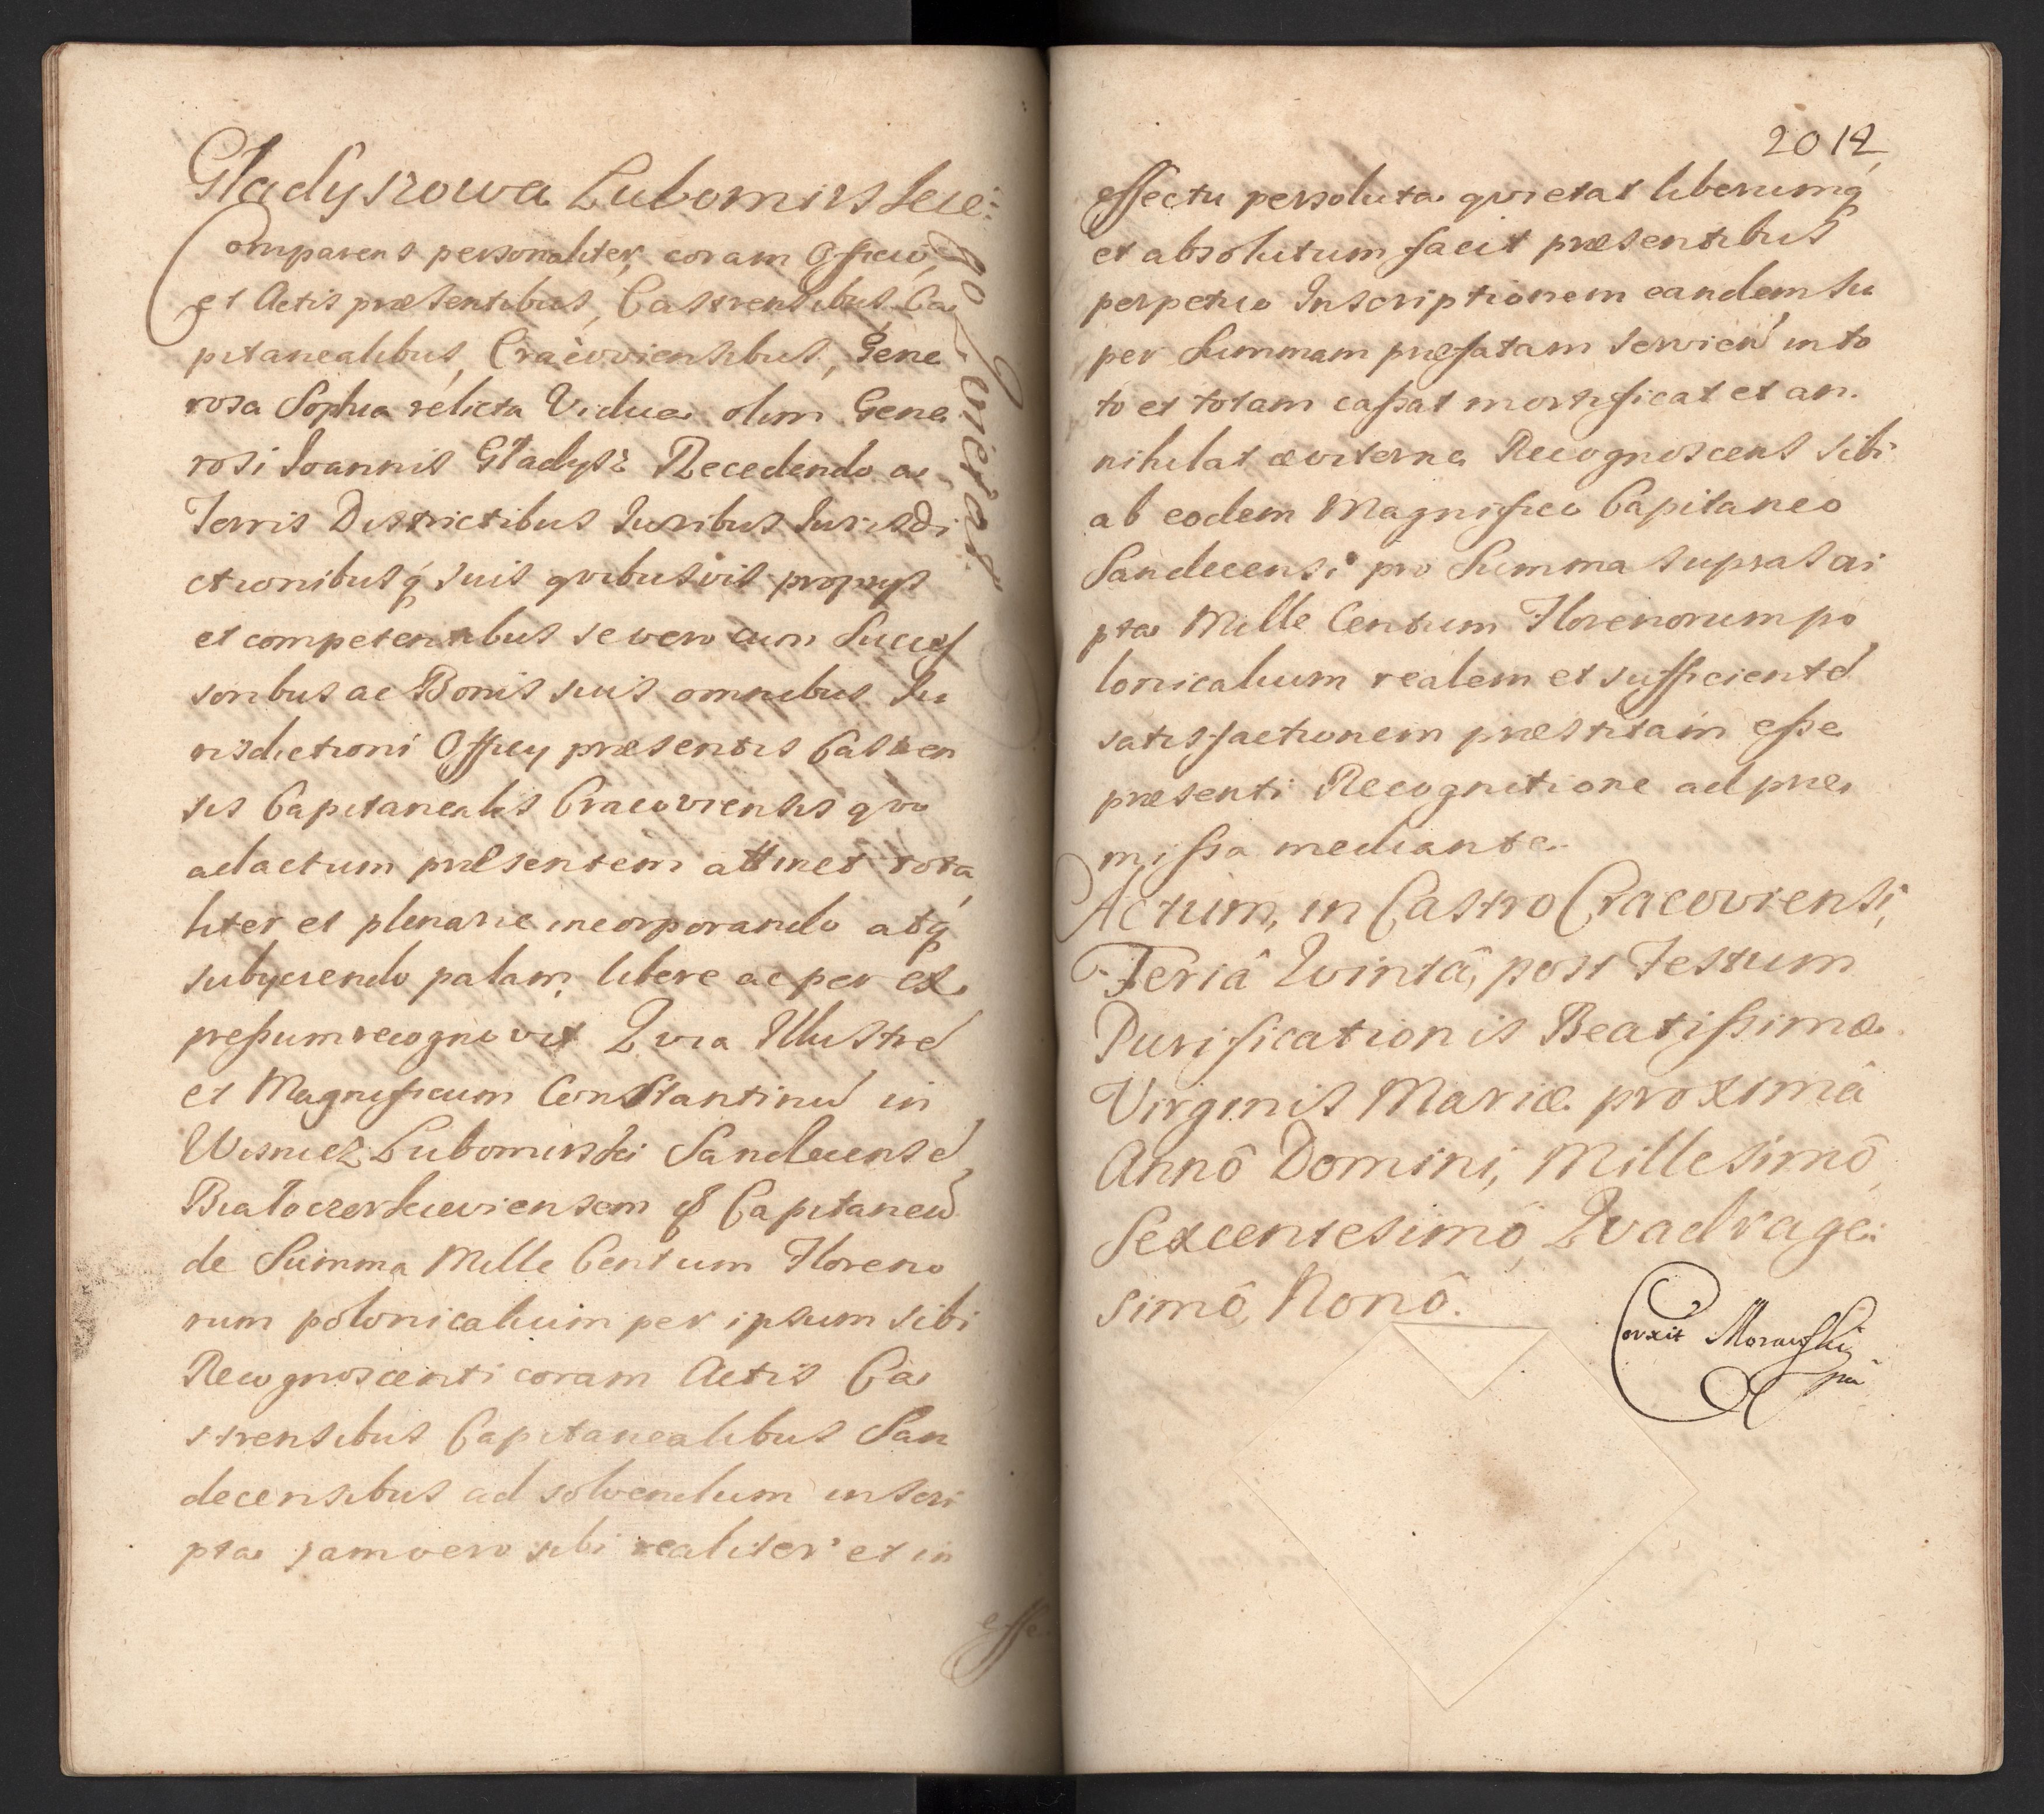 Gładyszowa Lubomirskie:
Comparens personaliter, coram Officio,
et Actis præsentibus, Castrensibus Ca
pitanealibus, Cracoviensibus, Gene
rosa Sophia relicta Vidua olim Gene
rosi Joannis Gładysz Recedendo a
Terris Districtibus Juribus Jurisdi
ctionibusq́ suis qvibusvis proprys
et competentibus se vero cum Succes
soribus ac Bonis suis omnibus Ju
risdictioni Officy præsentis Castren
sis Capitanealis Cracoviensis qvo
ad actum præsentem attinet tota
liter et plenarie incorporando atq́
subyciendo palam, libere ac per ex
preßum recognovit Qvia Illustrē
et Magnificum Constantinū in
Wisnicz Lubomirski Sandecensē
Białocerkieviensem & Capitaneū
de Summa Mille Centum Floreno
rum polonicalium per ipsum sibi
Recognoscenti coram Actis Ca
strensibus Capitanealibus San
decensibus ad solvendum inscri
pta jam vero sibi realiter et in
effe
Qvietat
2012
effectu persoluta qvietat liberumq́
et absolutum facit præsentibus
perpetuo Inscriptionem eandem su
per Summam præfatam servień in to
to et totam caßat mortificat et an.
nihilat æviterne Recognoscens sibi
ab eodem Magnifico Capitaneo
Sandecensi pro Summa suprascri
pta Mille Centum Florenorum po
lonicalium realem et sufficientē
satisfactionem præstitam eße
præsenti Recognitione ad præ
mißa mediante.
Actum, in Castro Cracoviensi,
Feriâ Qvintâ, post Festum
Purificationis Beatißimæ
Virginis Mariæ proximâ
Annô Domini, Millesimô,
Sexcentesimô, Qvadrage:
simô, Nonô.
Corrxit Morawski